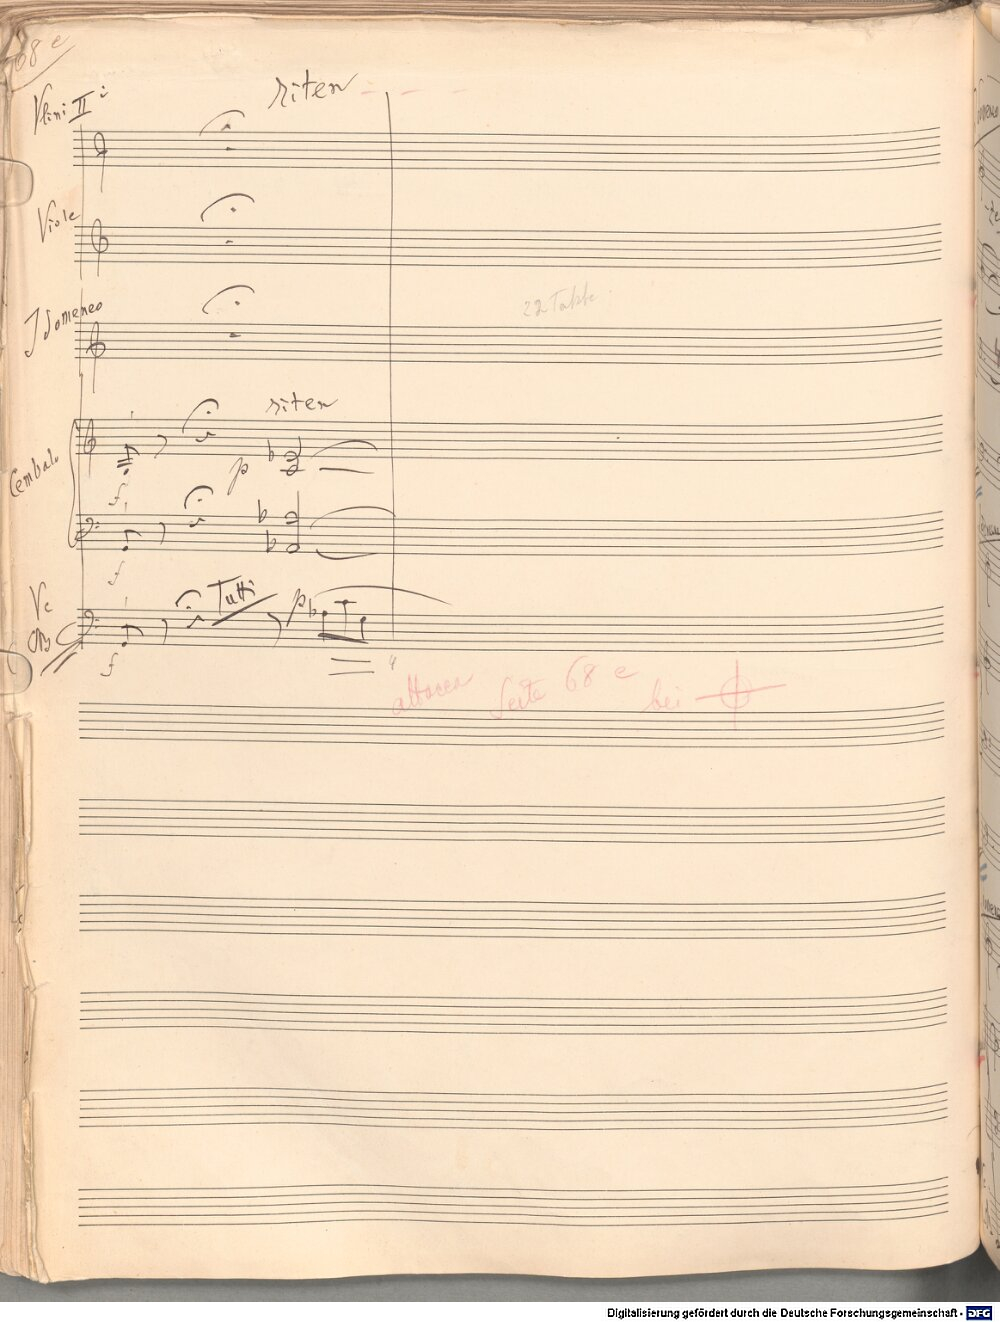 68 e
riten - - -
Vlini II
Viole
22 Takte
Idomeneo
riten
Cembalo
p
f
f
Vc
Tutti
p
f
attacca Seite 68 e bei
Digitalisierung gefördert durch die Deutsche Forschungsgemeinschaft - DFG